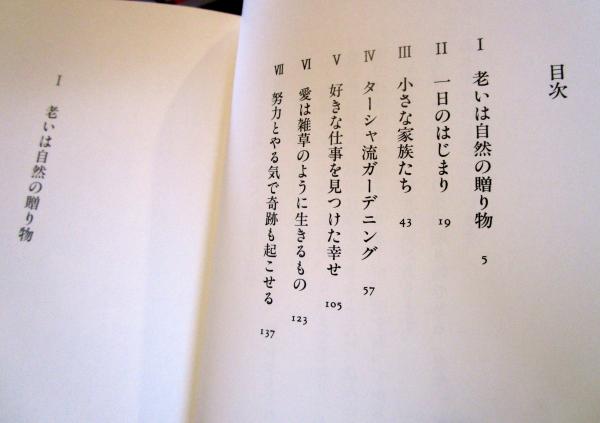 目次
I 老いは自然の贈り物 5
II 一日のはじまり 19
III 小さな家族たち 43
IV ターシャ流ガーデニング 57
V 好きな仕事を見つけた幸せ 105
VI 愛は雑草のように生きるもの 123
VII 努力とやる気で奇跡も起こせる 137
I 老いは自然の贈り物